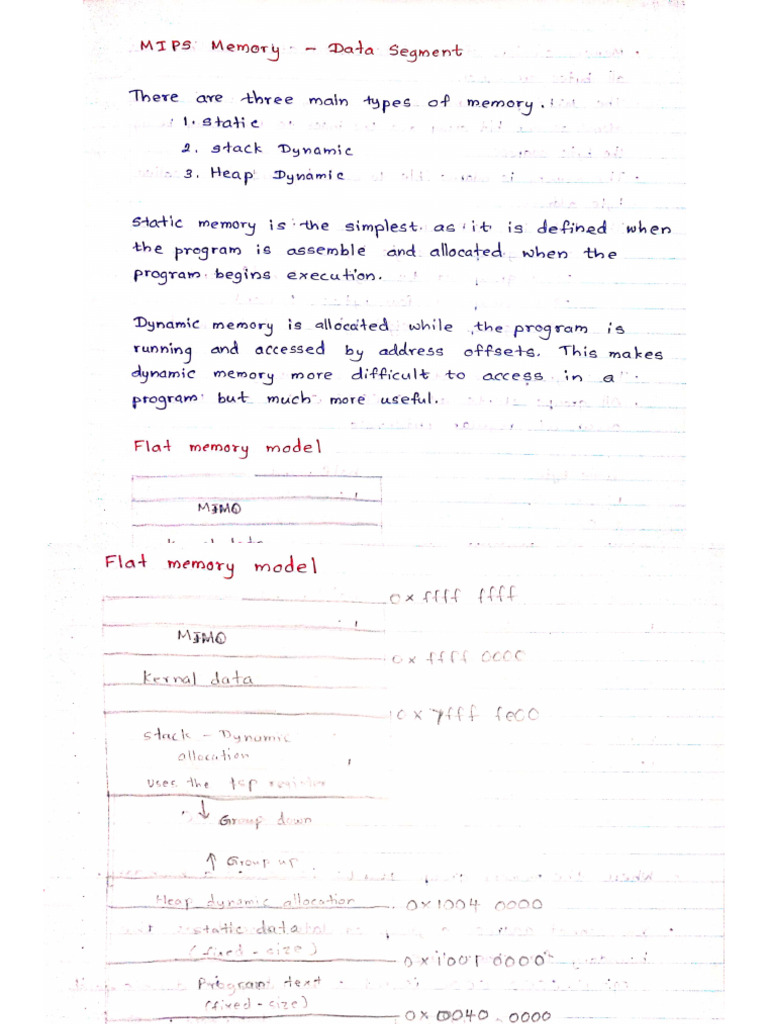 MIPS Memory - Data Segment
There are three main types of memory.
1. Static
2. stack Dynamic
3. Heap Dynamic
Static memory is the simplest as it is defined when
the program is assemble and allocated when the
program begins execution.
Dynamic memory is allocated while the program is
running and accessed by address offsets. This makes
dynamic memory more difficult to access in a
program but much more useful.
Flat memory model
MIMO
Flat memory model
0x ffff ffff
MIMO
0x ffff 0000
Kernal data
0x 7fff fe00
Stack - Dynamic
allocation
uses the $sp register
↓ Group down
↑ Group up
Heap dynamic allocation
0x1004 0000
static data
(fixed - size)
0x1001 0000
Program text
(fixed - size)
0x 0040 0000